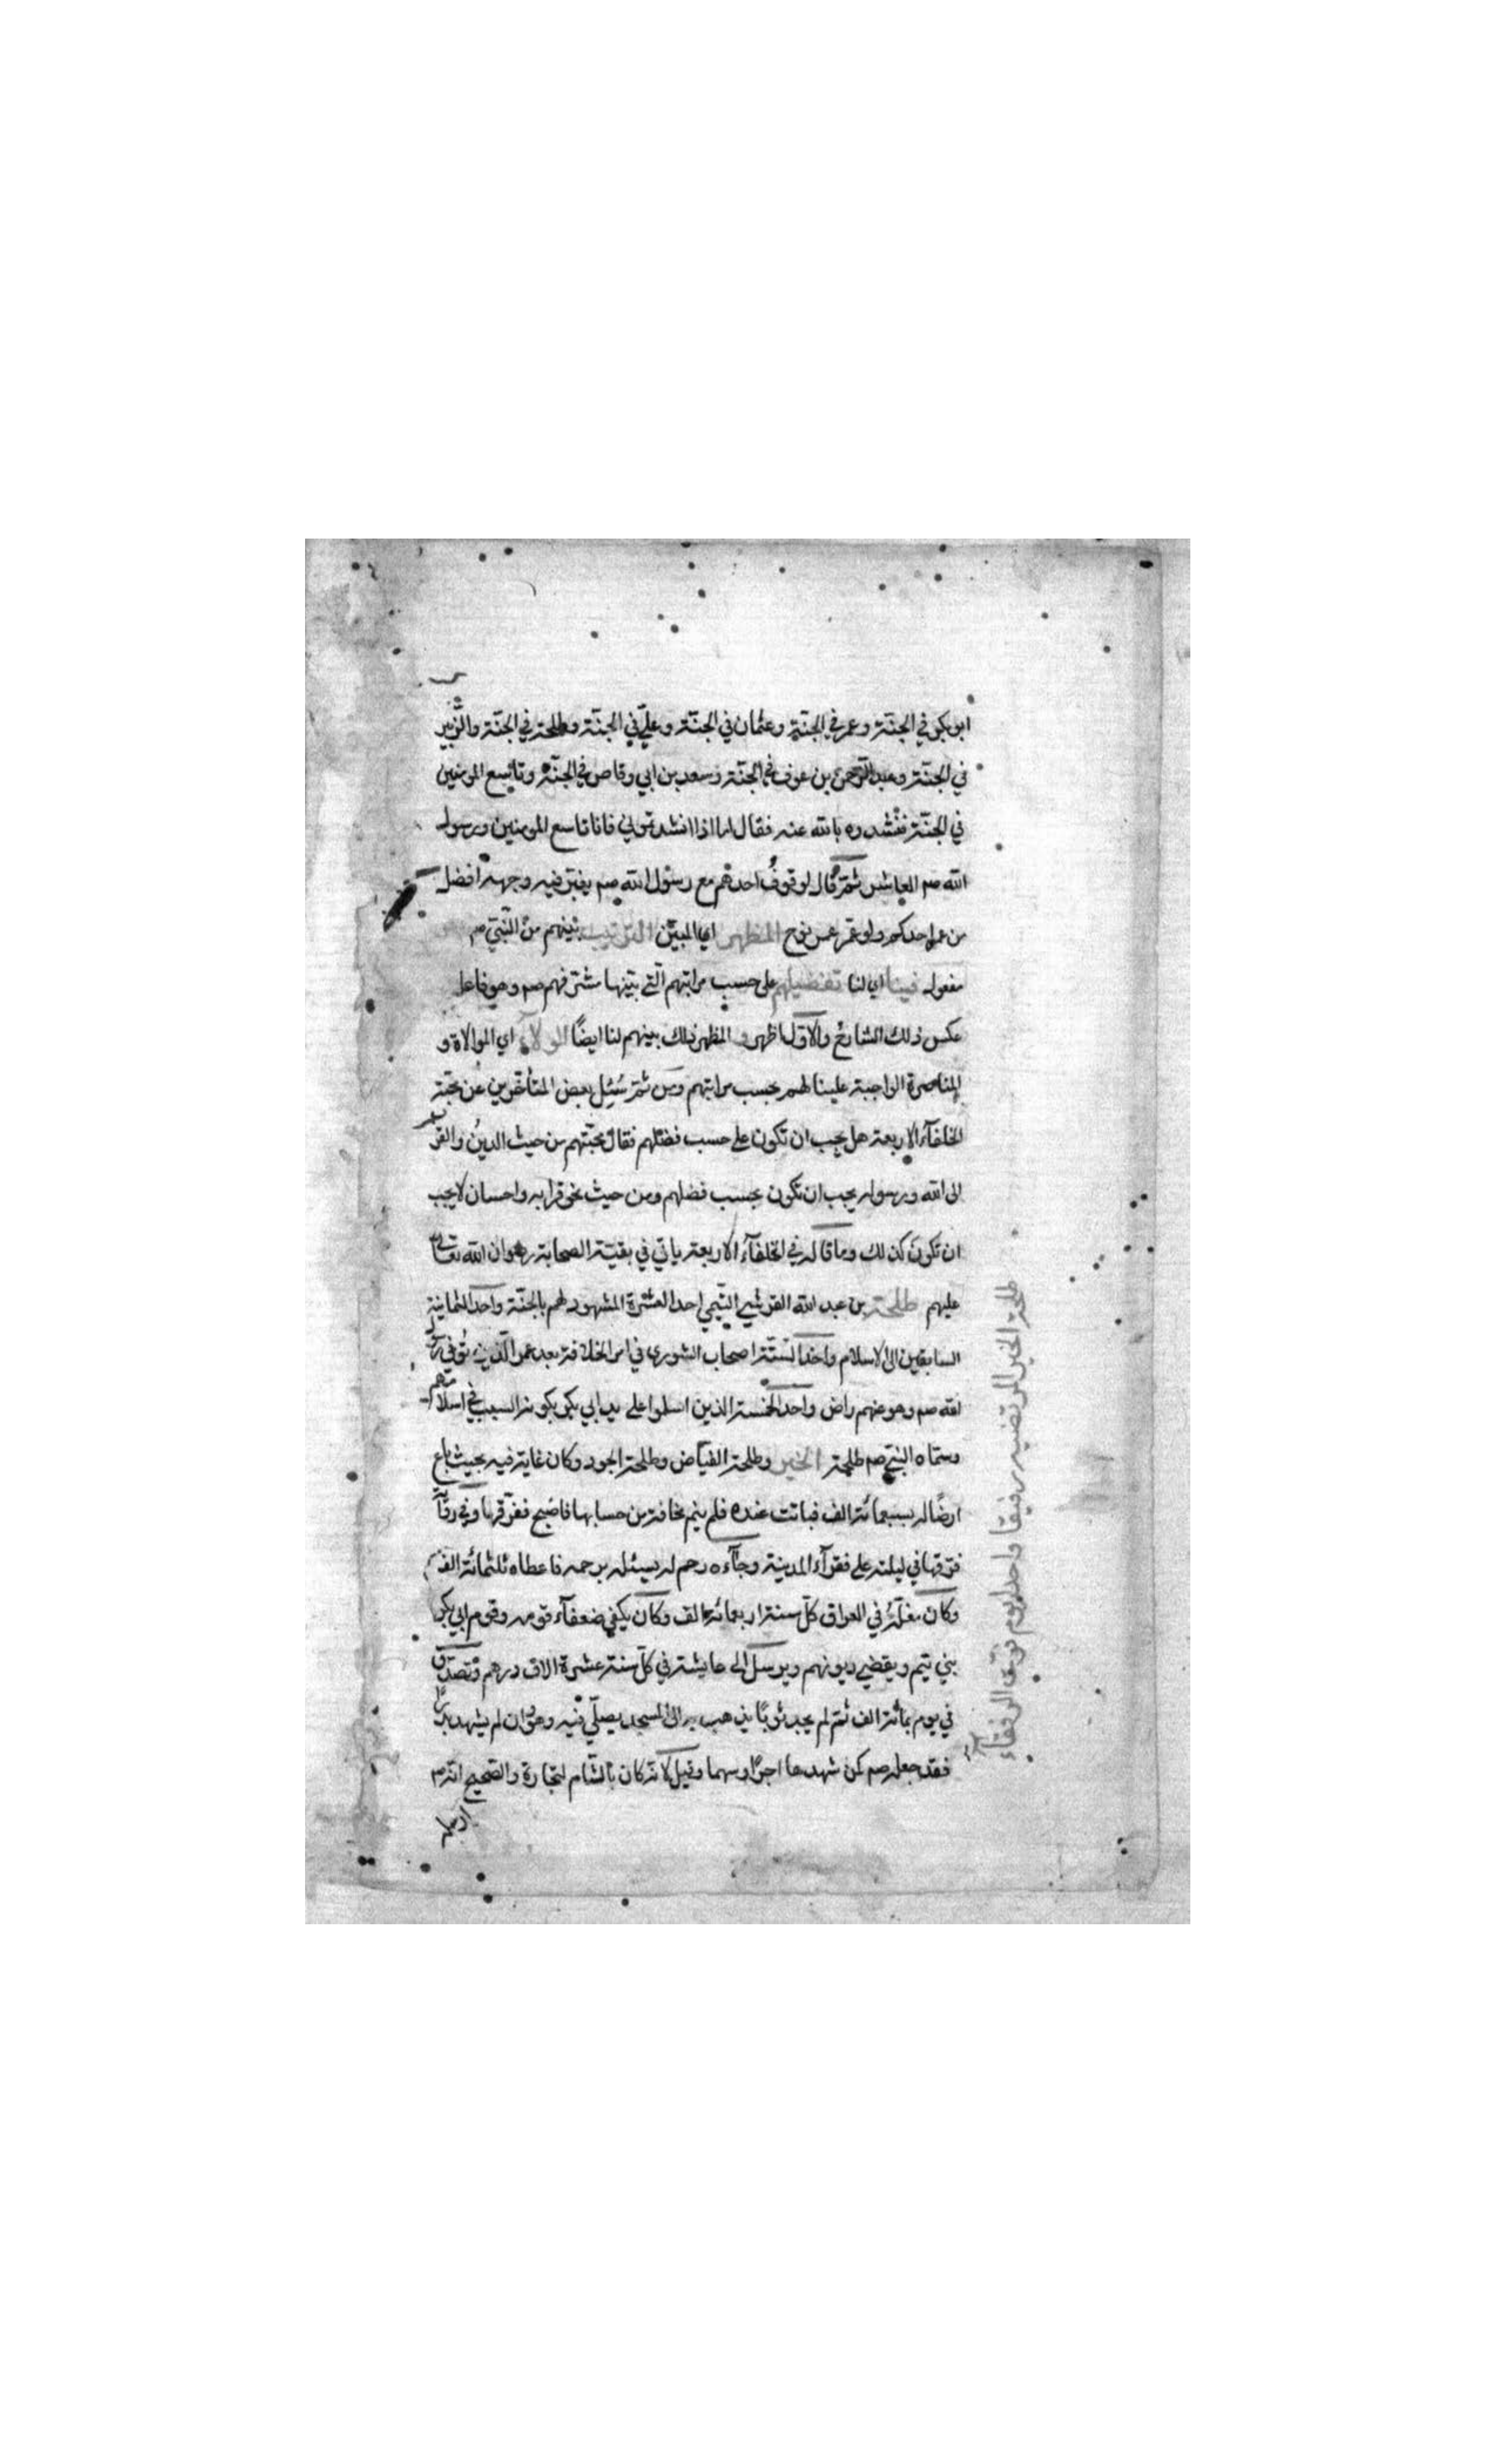 ابو بكر في الجنّة وعمر في الجنّة وعثمان في الجنّة وعليّ في الجنّة وطلحة في الجنّة والزّبير
في الجنّة وعبد الرّحمن بن عوف في الجنّة وسعد بن ابي وقاص في الجنّة وتاسع المومنين
في الجنّة فنشدوه بالله عنه فقال اما اذا انشدتموني فانا تاسع المومنين ورسول
الله صم العاشر ثمّ قال لوقوف احدهم مع رسول الله صم يغبّر فيه وجهه افضل
من عمل احدكم ولو عمّر عمر نوح المظهر اي المبيّن الترتيب بينهم من النّبيّ صم
مفعول فينا اي لنا تفضيلهم على حسب مراتبهم الّتي بيّنها مشرّفهم صم وهو فاعل
عكس ذلك الشارح والاوّل اظهر والمظهر ذلك بينهم لنا ايضًا الولاء اي الموالاة و
المناصرة الواجبة علينا لهم بحسب مراتبهم ومن ثمّ سُئِل بعض المتأخّرين عن محبّة
الخلفآء الاربعة هل يجب ان تكون على حسب فضلهم فقال محبّتهم من حيث الدين والقرب
الى الله ورسوله يجب ان تكون بحسب فضلهم ومن حيث نحو قرابه واحسان لا يجب
ان تكون كذلك وما قاله في الخلفآء الاربعة ياتي في بقيّة الصحابة رضوان الله تعالى
عليهم طلحة بن عبد الله القرشي التّيمي احد العشرة المشهود لهم بالجنّة واحد الثمانية
السابقين الى الاسلام واحد السّتّة اصحاب الشورى في امر الخلافة بعد عمر الّذين تُوفي رسول
الله صم وهو عنهم راض واحد الخمسة الذين اسلموا على يد ابي بكر بكونه السبب في اسلامهم
وسمّاه النبيّ صم طلحة الخير وطلحة الفيّاض وطلحة الجود وكان غاية فيه بحيث باع
ارضًا له بسبعمائة الف فباتت عنده فلم ينم مخافة من حسابها فاصبح ففرّقها وفي رواية
فرّقها في ليلته على فقرآء المدينة وجآءه رحم له يسئله برحمه فاعطاه ثلثمائة الف
وكان مغلّه في العراق كلّ سنة اربعمائة الف وكان يكفي ضعفآء قومه وقوم ابي بكر
بني تيم ويقضي ديونهم ويرسل الى عايشة في كلّ سنة عشرة الاف درهم وتصدّق
في يوم بمائة الف ثمّ لم يجد ثوبًا يذهب به الى المسجد يصلّي فيه وهو وان لم يشهد بدرًا
فقد جعله صم كمن شهدها اجرًا وسهما وقيل لانه كان بالشام لتجارة والصحيح انه صم
ارسله
طلحة الخير المرتضيه رفيقا واحدا يوم فرّت الرفقاء